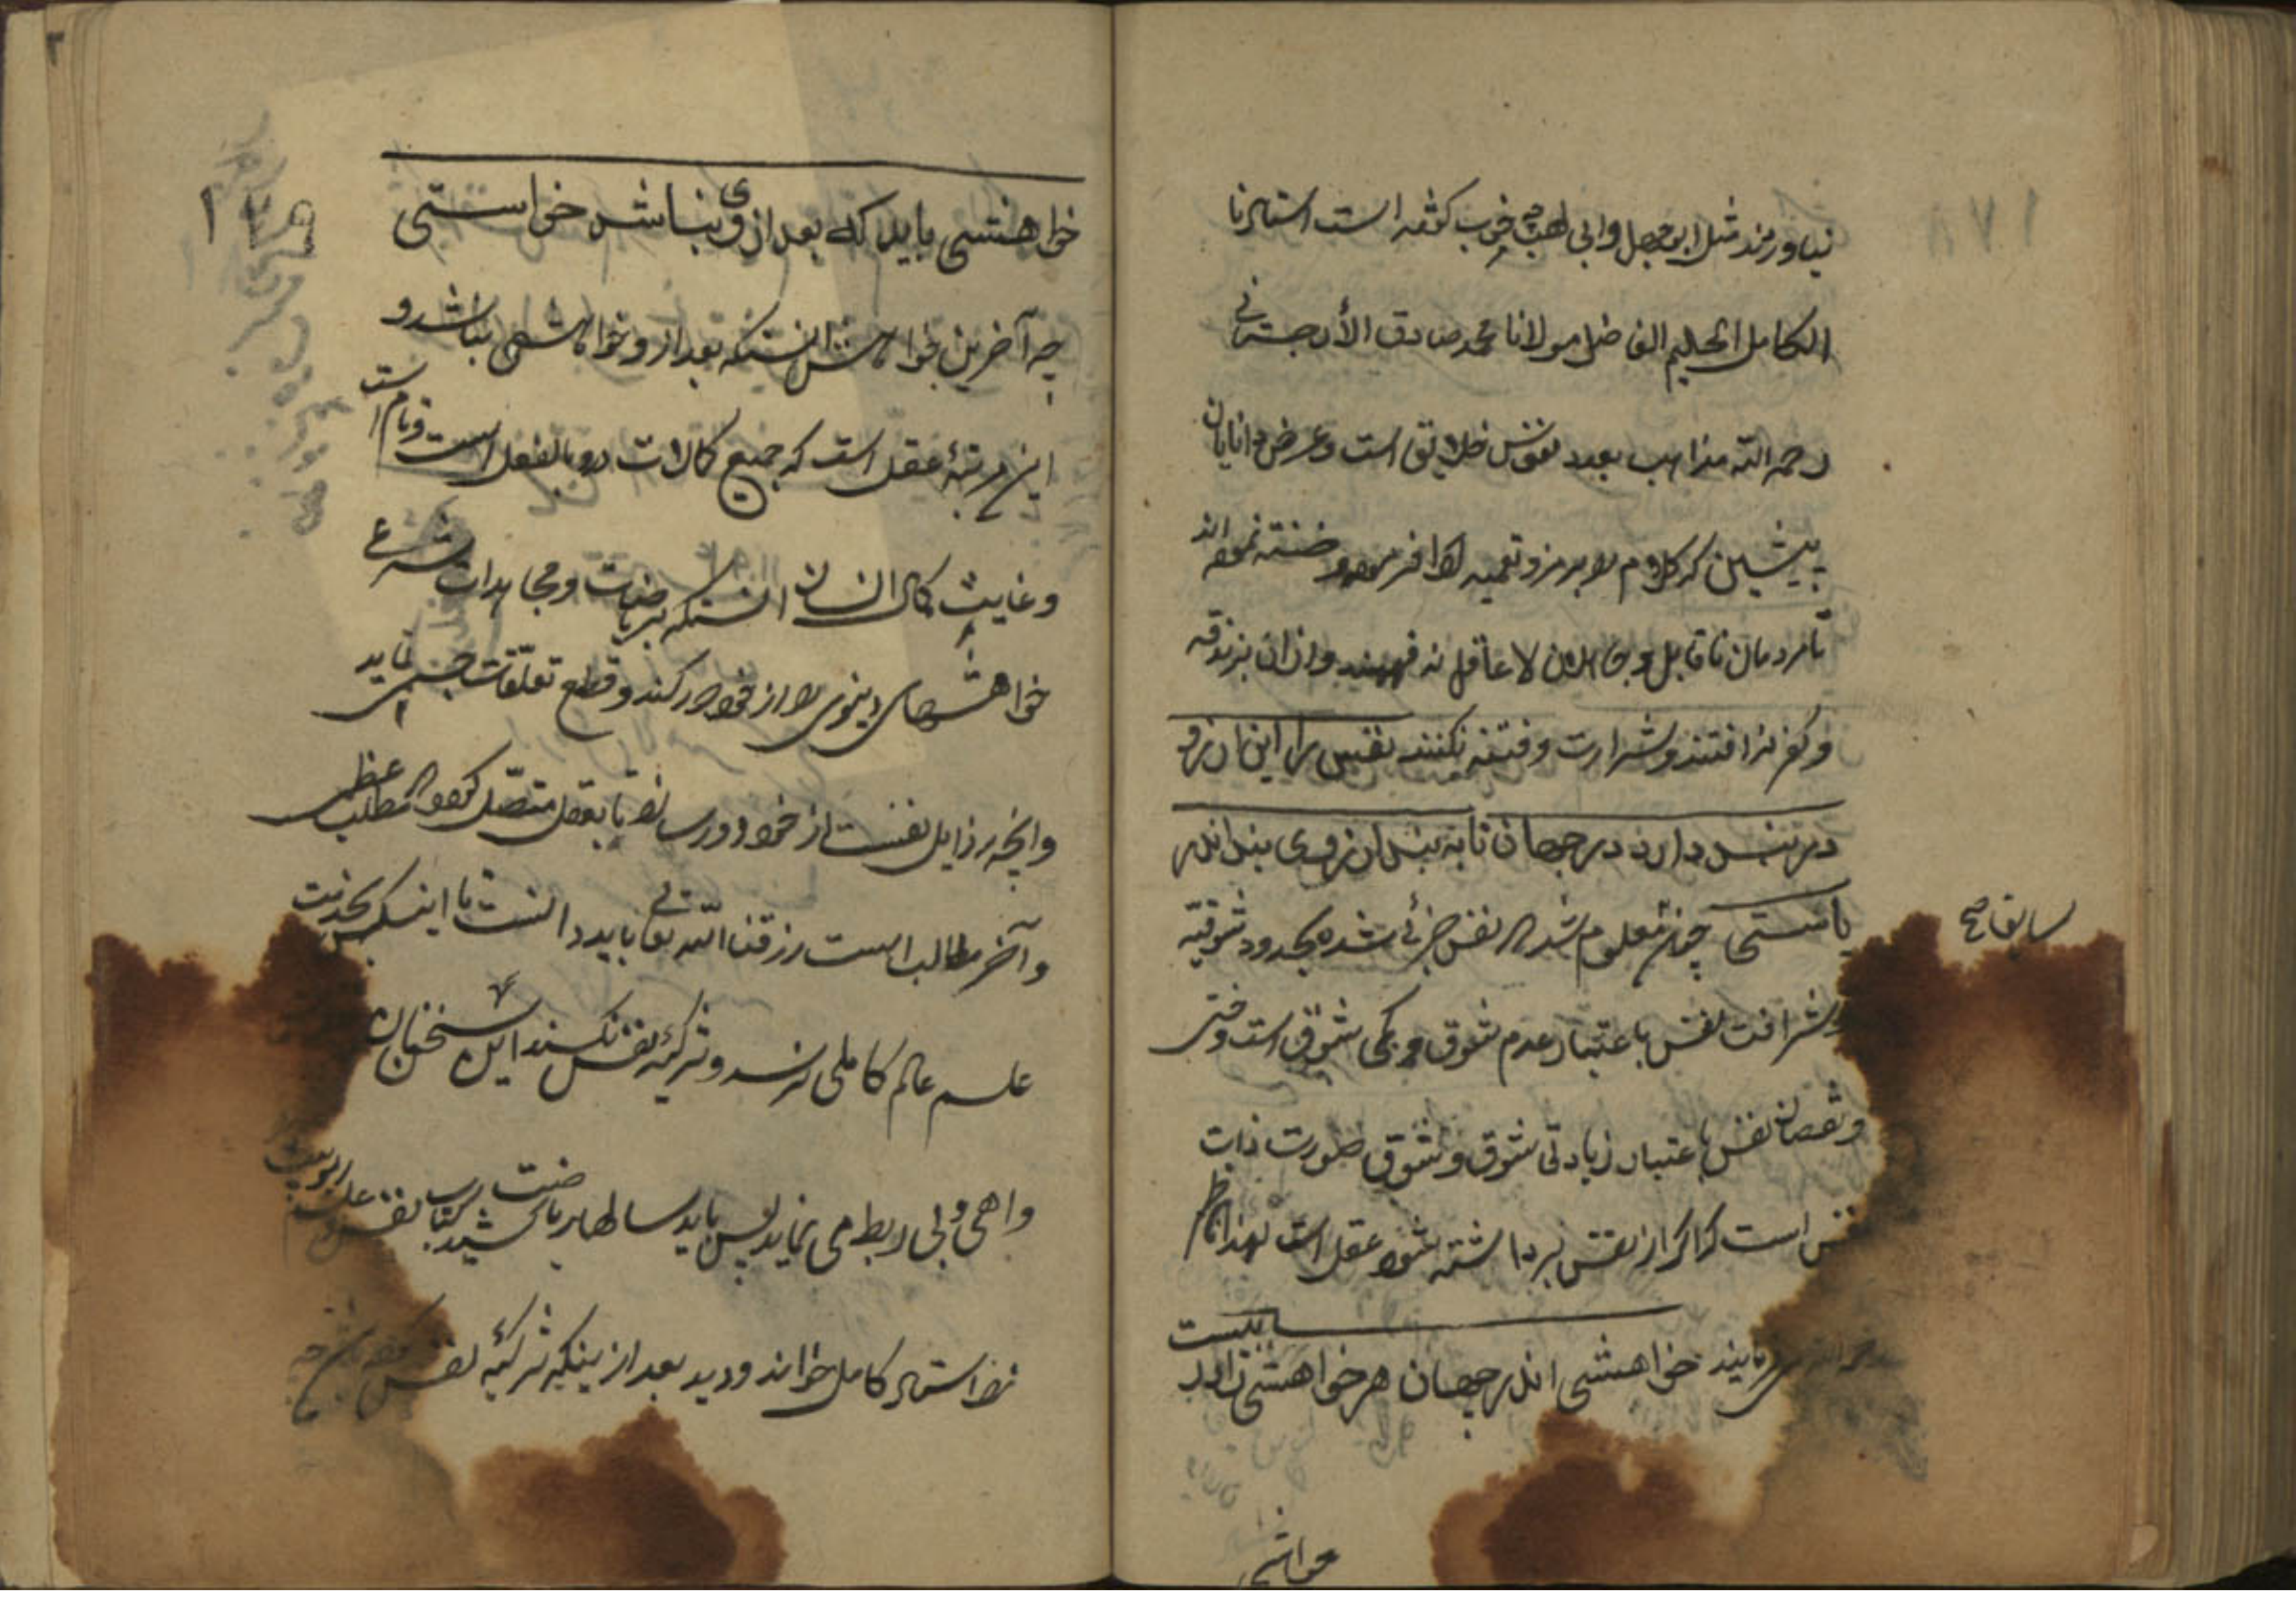 ۱۷۸
نیاوردند مثل ابوجهل و ابی لهب خوب گفته است استاد نا
الکامل الحلیم الفاضل مولانا محمد صادق الأردستانی
رحمه الله مذاهب بعدد نفوس خلایق است و غرض دانایان
پیشین که کلام را برمز و تعمیه ادا فرموده اند
تا مردمان ناقابل و جاهلان لا عاقل نه فهمند و از ان بزندقه
و کفر نه افتند و شرارت و فتنه نکنند نفس را این آرزو
در بند دارد در جهان تا به بند آرزوی بند اندر
باستی چون معلوم شد که نفس جزئی شده بحدود شوقیه
سابقا صح
شرافت نفس باعتبار عدم شوق و کمی شوق است و خسّی
و نقصان نفس باعتبار زیادتی شوق و شوق ضورت ذات
نفس است که اگر از نفس برداشته شود عقل است لهذا ناظم
رحمه الله میفرمایند خواهشی اندر جهان هر خواهشی را در پیست
خواهشی
۱۷۹
خواهشی باید که بعد از وی نباشد خواستی
چه آخرین خواهش آنستکه بعد از و خواهشی نباشد و
این مرتبهٔ عقل است که جمیع کمالات درو بالفعل است و تام است
و غایت کمال انسان آنستکه بریاضت و مجاهدات شرع
خواهشهای دنیوی را از خود دور کند و قطع تعلّقات جسمی نماید
و انچه رذایل نفست از خود دور سازد تا بعقل متصّل گردد که مطلب عظمی
و آخر مطالب است رزقنا الله تعالی باید دانست تا اینکس بخدمت
علم عالم کاملی نرسد و تزکیهٔ نفس نکند این سخنان
واهی و بی ربط می نماید پس باید سالها ریاضت کشید کتاب نفس
نزد استاد کامل خواند و دید بعد از ینکه تزکیهٔ نفس